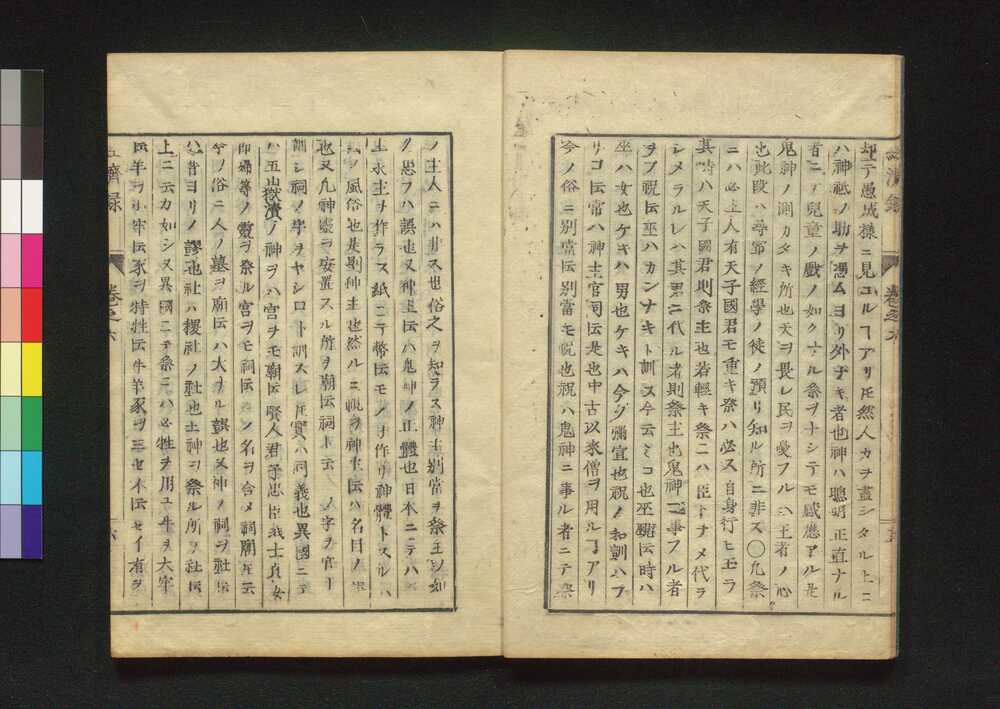 却テ愚城様ニ見ユルヿアリ𪜈然人カヲ盡シタル上ニ
ハ神祗ノ助ヲ憑ムヨリ外ナキ者也神ハ聰明正直ナル
者ニテ兒童ノ戲ノ如クナル祭ヲナシテモ感應アル是
鬼神ノ測カタキ所也天ヲ畏レ民ヲ憂フルハ王者ノ心
也此段ハ尋常ノ經學ノ徒ノ預リ知ル所ニ非ス〇凡祭
ニハ必主人有天子國君モ重キ祭ハ必ス自身行ヒ玉ラ
其時ハ天子國君則祭主也若輕キ祭ニハ臣下ナメ代ラ
シメラルレハ其男ニ代ル者則祭主也鬼神ニ事フル者
ヲフ祝伝巫ハカンナキト訓ス今云ミコ也巫覡伝時ハ
巫ハ女也ケキハ男也ケキハ今ノ彌宜也祝ノ和訓ハフ
リコ伝常ハ神主宮司伝是也中古以來僧ヲ用ルヿアリ
今ノ俗ニ別當伝別當モ祝也祝ハ鬼神ニ事ル者ニテ祭
ノ主人ニハ非ス也俗之ヲ知ラス神主別當ヲ祭主ノ如
ク思フハ誤也又神主伝ハ鬼神ノ正體也日本ニテハ
木主ヲ作ラス紙ニテ幣伝モノヲ作リ神體トスルハ
ノ風俗也是則神主也然ルニ祝ヲ神主伝ハ名目ノ
也又凡神靈ヲ安置スル所ヲ廟伝祠ト云ノ字ヲ官ー
訓シ祠ノ字ヲヤシロト訓スレ𪜈實ハ同義也異國ニテ
ハ五山嶽瀆ノ神ヲハ宮ヲモ廟伝賢人君子忠臣義士貞女
節婦等ノ靈ヲ祭ル宮ヲモ祠伝二ノ名ヲ合メ祠廟𪜈云
今ノ俗ニ人ノ墓ヲ廟伝ハ大ナル誤也又神ノ祠ヲ社伝
ハ昔ヨリノ謬也社ハ稷社ノ社也土神ヲ祭ル所ヲ社伝
上ニ云カ如シ又異國ニテ祭ニハ必牲ヲ用ユ牛ヲ大牢
伝羊ヲ小牢伝豕ヲ特牲伝牛羊豕ヲ三セイ伝セイ有ヲ